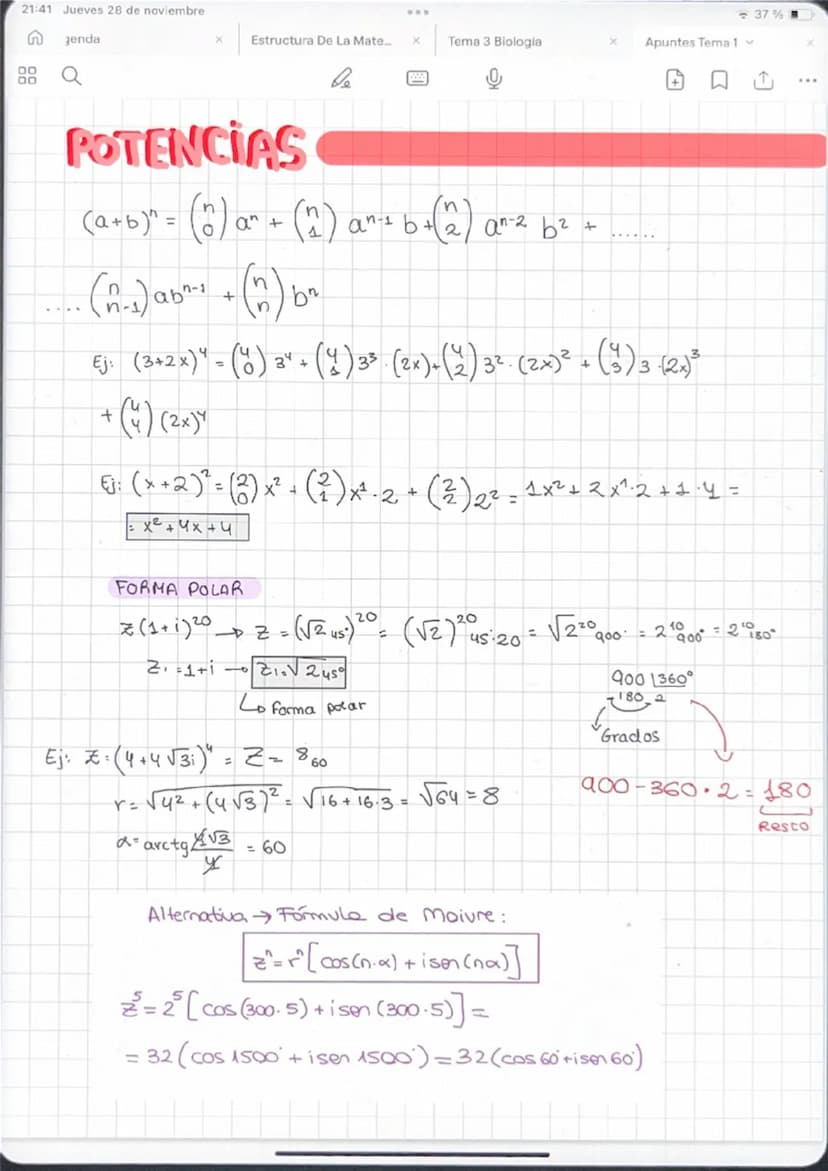 21:41 Jueves 28 de noviembre
37 %
genda × Estructura De La Mate... × Tema 3 Biología × Apuntes Tema 1 ×
POTENCIAS
(a+b)ⁿ = (n 0) aⁿ + (n 1) aⁿ⁻¹ b + (n 2) aⁿ⁻² b² + ......
.... (n n-1) abⁿ⁻¹ + (n n) bⁿ
Ej: (3+2x)⁴ = (4 0) 3⁴ + (4 1) 3³ · (2x) + (4 2) 3² · (2x)² + (4 3) 3 · (2x)³
+ (4 4) (2x)⁴
Ej: (x+2)² = (2 0) x² + (2 1) x¹ · 2 + (2 2) 2² = 1x² + 2x¹·2 + 1·4 =
= x² + 4x + 4
FORMA POLAR
z(1+i)²⁰ → z = (√2 45°)²⁰ = (√2)²⁰ 45·20 = √2²⁰ 900° = 2¹⁰ 900° = 2¹⁰ 180°
z₁ = 1+i → z₁ = √2 45°
↳ forma polar
900 | 360°
-180 2
Grados
900 - 360 · 2 = 180
Resto
Ej: z = (4+4√3i)⁴ = z = 8 60
r = √4² + (4√3)² = √16 + 16·3 = √64 = 8
α = arctg 4√3/4 = 60
Alternativa → Fórmula de Moivre:
zⁿ = rⁿ [cos(n·α) + i sen(nα)]
z⁵ = 2⁵ [cos(300·5) + i sen(300·5)] =
= 32 (cos 1500° + i sen 1500°) = 32 (cos 60° + i sen 60°)